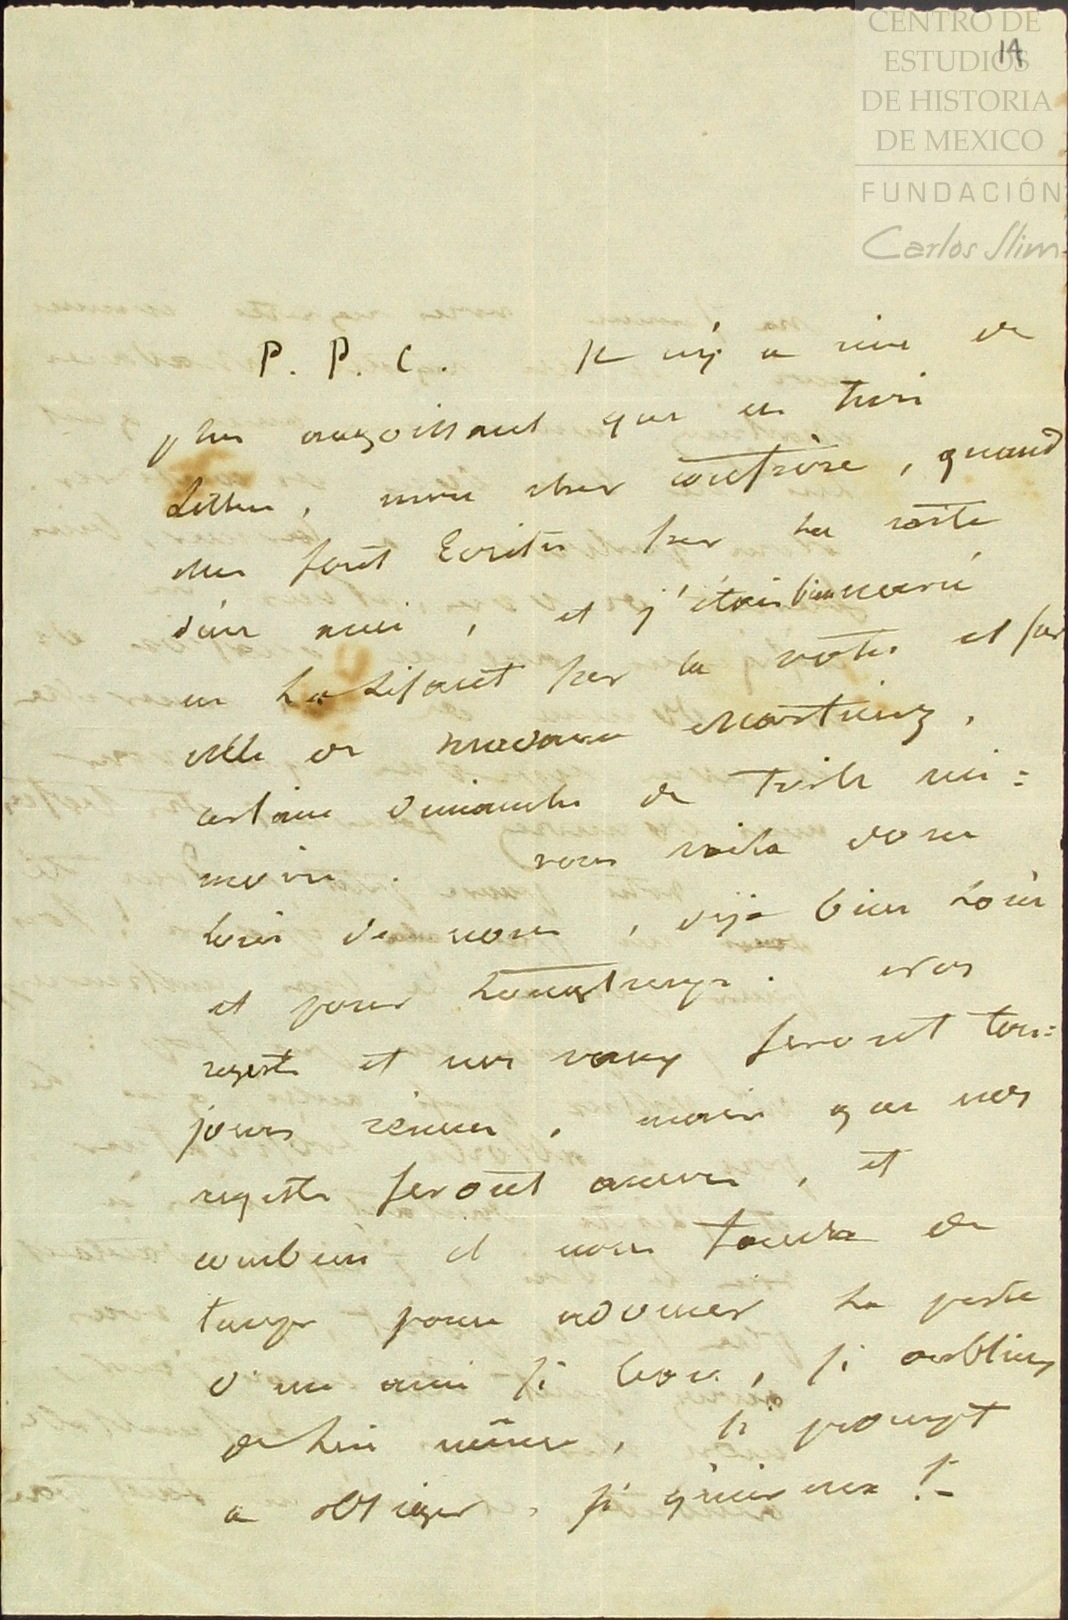 CENTRO DE
ESTUDIOS
DE HISTORIA
DE MEXICO
FUNDACIÓN
Carlos Slim
14
P. P. C. Il n'y a rien de
plus angoissant que ces trois
lettres, mon cher confrère, quand
elles sont écrites sur la carte
d'un ami, et j'étais bien navré
en les lisant sur la votre et sur
celle de madame Martinez,
certain dimanche de triste mé=
moire. Vous voila donc
loin de nous, déjà bien loin
et pour longtemps. Nos
regrets et nos voeux seront tou=
jours réunis, mais que nos
regrets seront amers, et
combien il nous faudra de
temps pour adoucir la perte
d'un ami si bon, si oublieux
de lui même, si prompt
a obliger, si généreux !